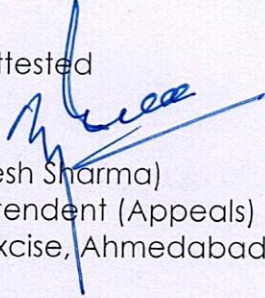 ttested
esh Sharma)
tendent (Appeals)
xcise, Ahmedabad